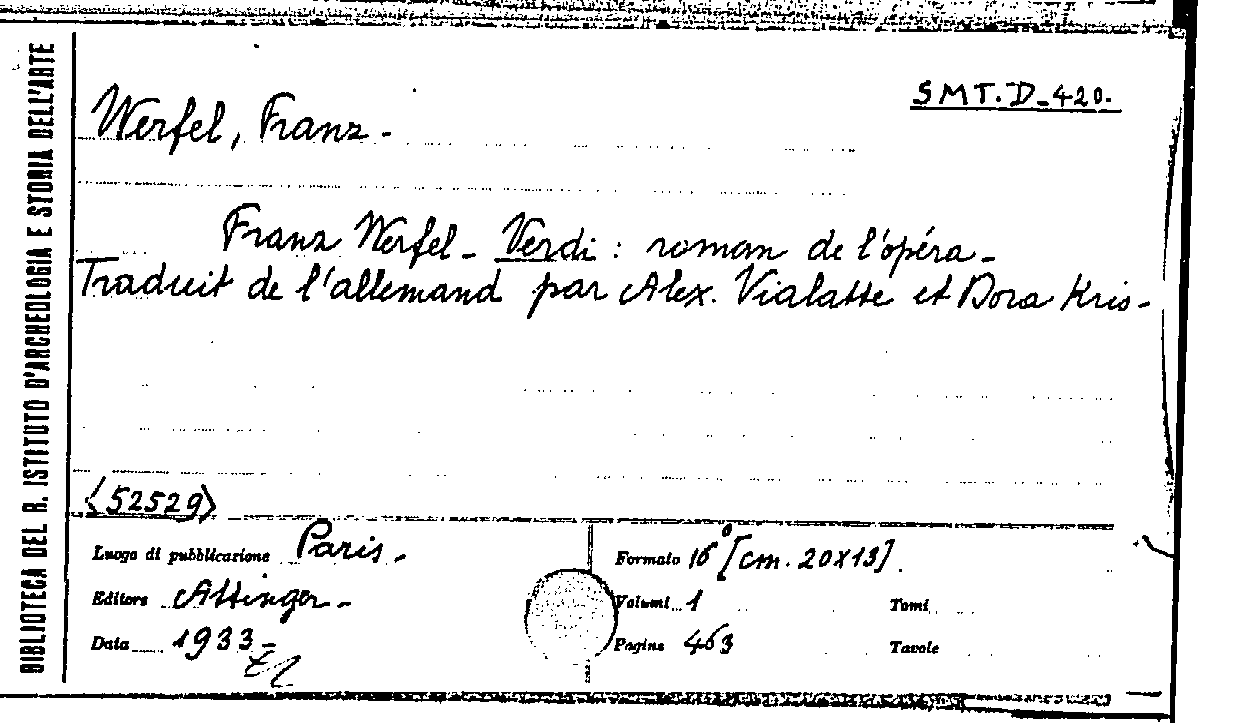 BIBLIOTECA DEL R. ISTITUTO D'ARCHEOLOGIA E STORIA DELL'ARTE
SMT.D-420.
Werfel, Franz-
Franz Werfel - Verdi : roman de l'opéra -
Traduit de l'allemand par Alex. Vialatte et Dora Kris-
<52529>
Luogo di pubblicazione Paris-
Formato 16° [cm. 20x13].
Editore Attinger-
Volumi 1
Tomi
Data 1933-
Pagine 463
Tavole